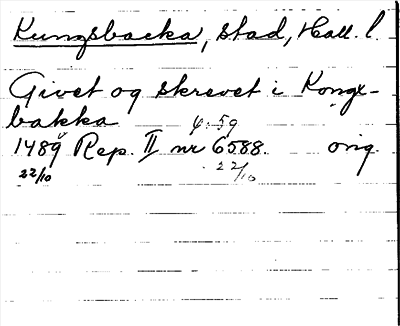 Kungsbacka, stad, Hall. l.
Givet og skrevet i Kongx-
bakka
1489 Rep. II nr 6588. orig.
22/10 22/10